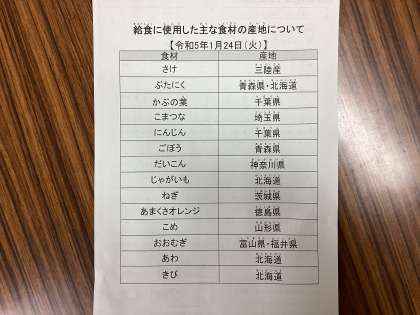 給食に使用した主な食材の産地について
【令和5年1月24日(火)】
食材 産地
さけ 三陸産
ぶたにく 青森県・北海道
かぶの葉 千葉県
こまつな 埼玉県
にんじん 千葉県
ごぼう 青森県
だいこん 神奈川県
じゃがいも 北海道
ねぎ 茨城県
あまくさオレンジ 徳島県
こめ 山形県
おおむぎ 富山県・福井県
あわ 北海道
きび 北海道